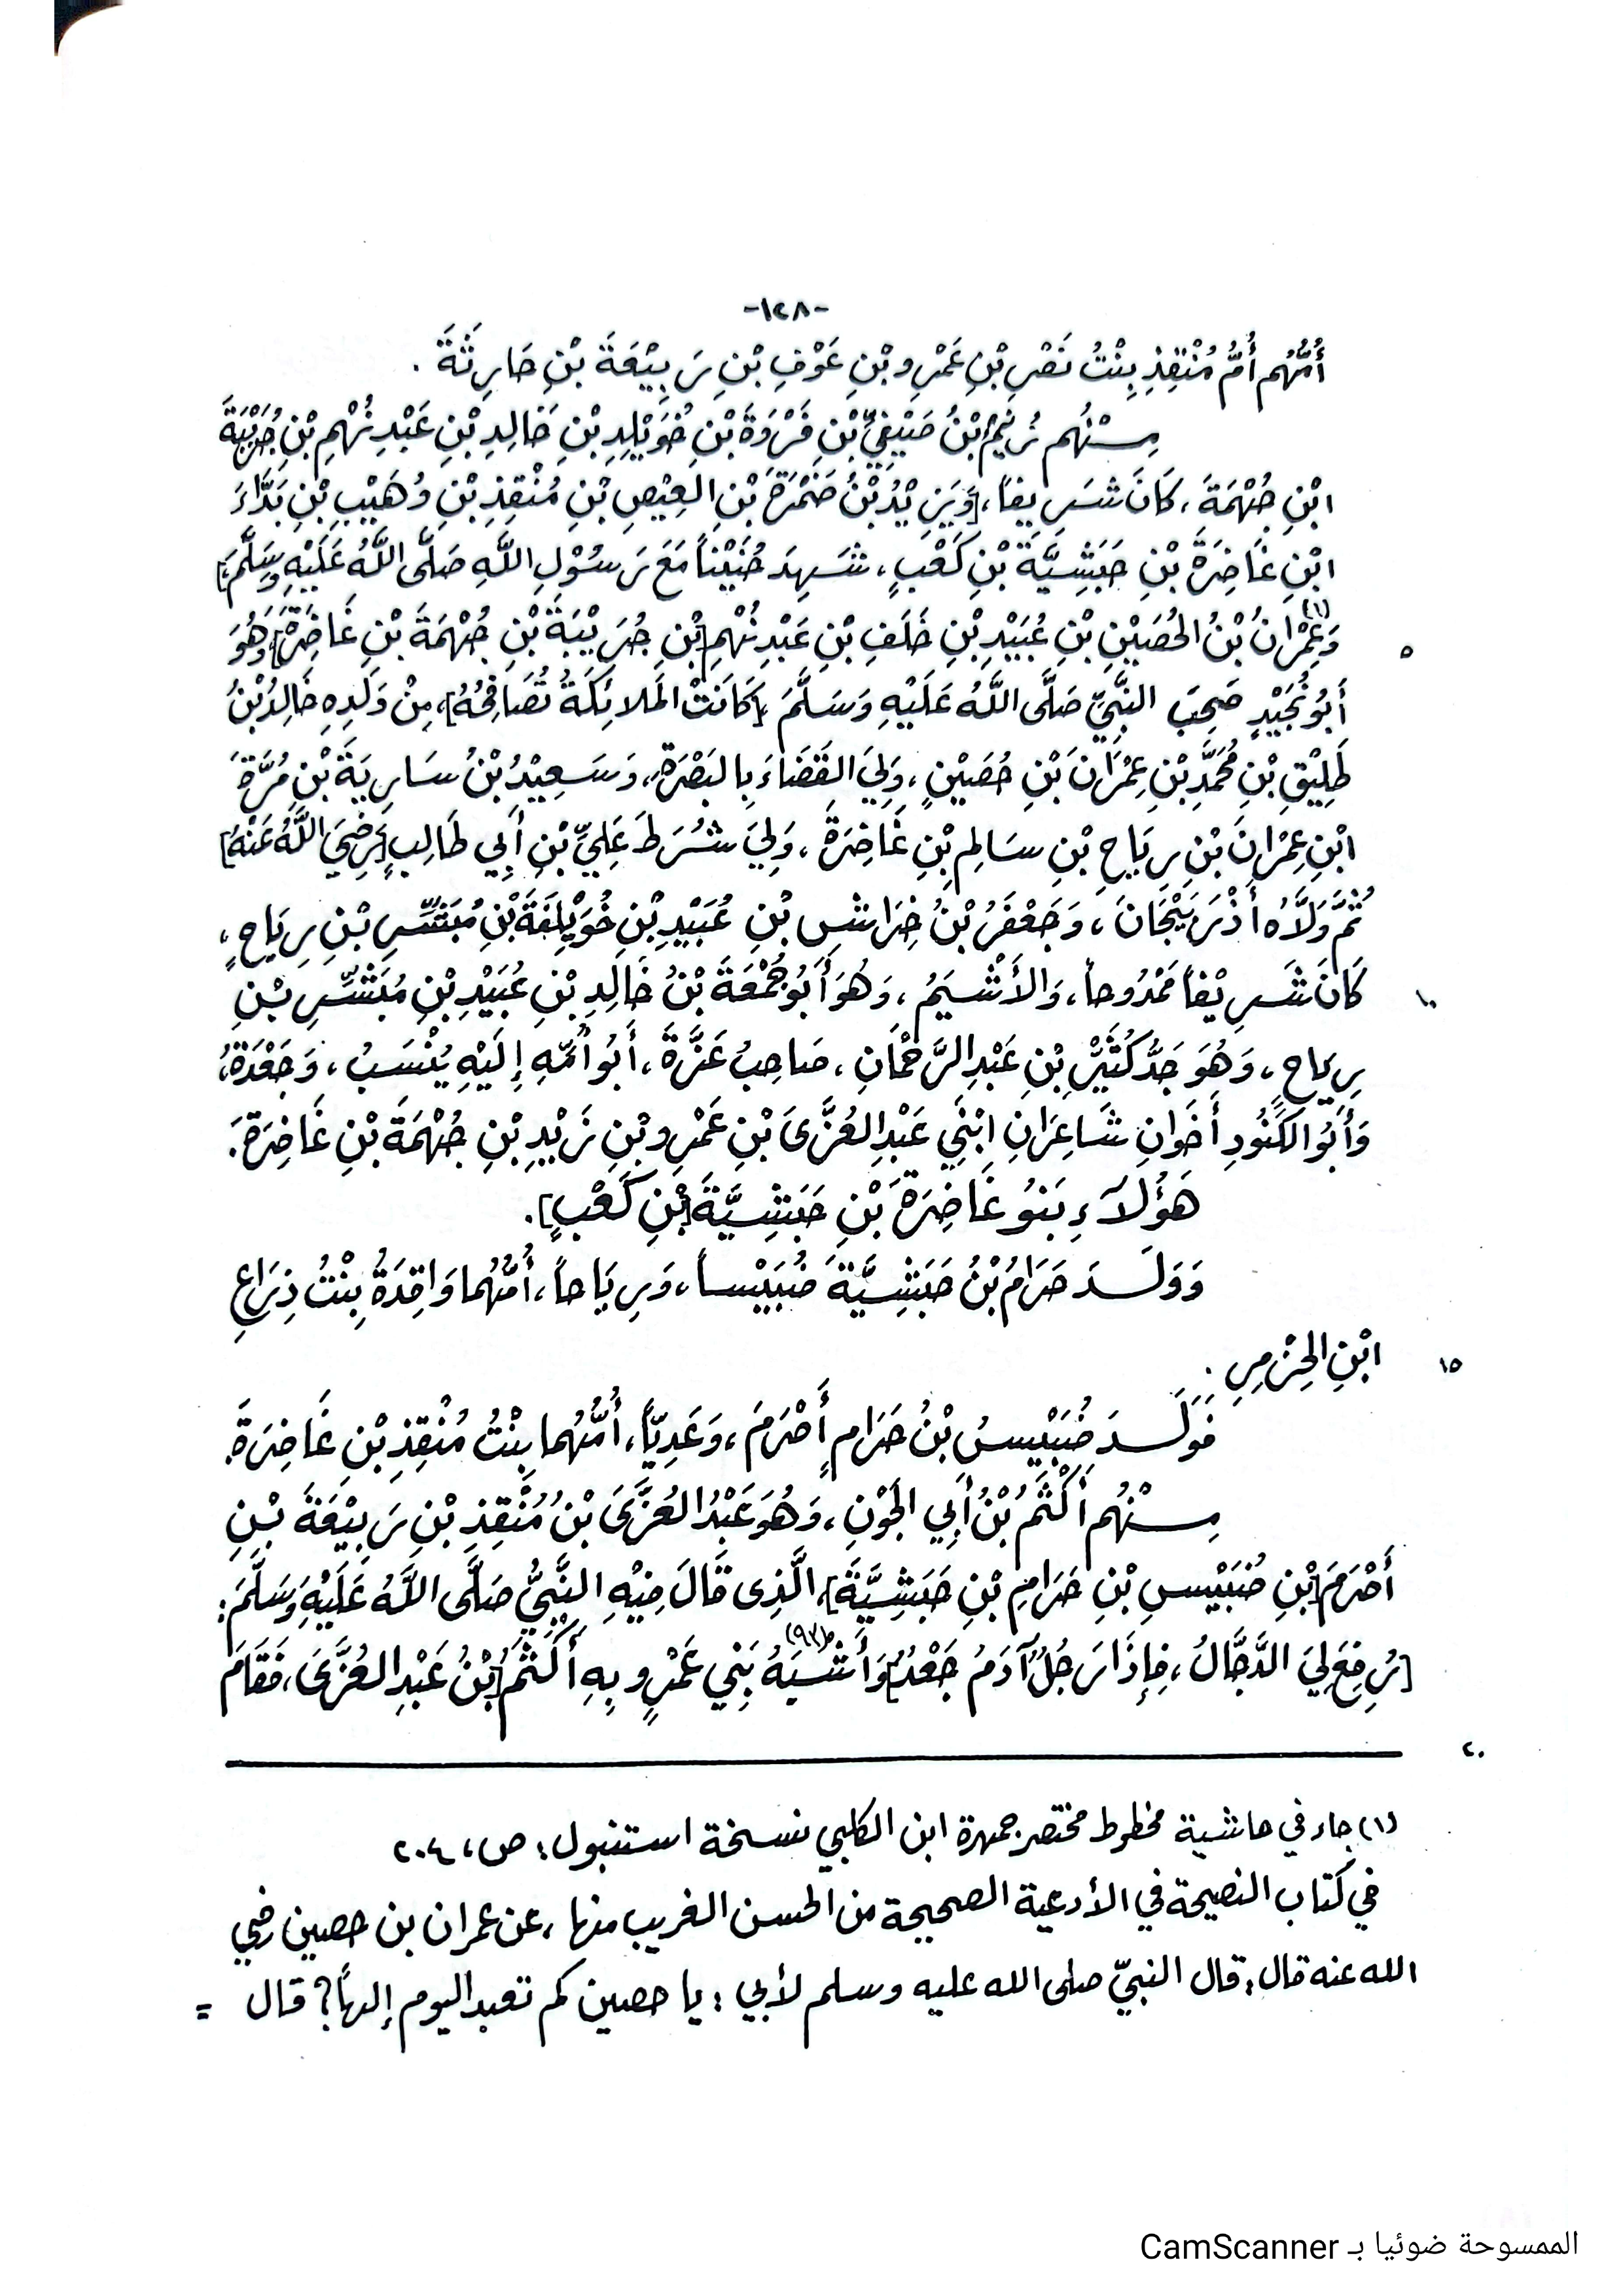 -١٢٨-
أُمُّهُم أُمُّ مُنْقِذِ بِنْتُ نَصْرِ بْنِ عَمْرِو بْنِ عَوْفِ بْنِ رَبِيْعَةَ بْنِ حَارِثَةَ .
مِنْهُم نُعَيْمُ بْنُ صَيْفِيِّ بْنِ فَرْوَةَ بْنِ خُوَيْلِدِ بْنِ خَالِدِ بْنِ عَبْدِ نُهْمِ بْنِ جُرَيْبَةَ
ابْنِ جُهْمَةَ ، كَانَ شَرِيفاً ، [وَيَزِيْدُ بْنُ ضَمْرَةَ بْنِ العِيْصِ بْنِ مُنْقِذِ بْنِ وُهَيْبِ بْنِ بَدَّاءَ
ابْنِ غَاضِرَةَ بْنِ حَبَشِيَّةَ بْنِ كَعْبٍ ، شَهِدَ حُنَيْناً مَعَ رَسُوْلِ اللَّهِ صَلَّى اللَّهُ عَلَيْهِ وَسَلَّمَ]،
وَعِمْرَانُ(١) بْنُ الحُصَيْنِ بْنِ عُبَيْدِ بْنِ خَلَفِ بْنِ عَبْدِ نُهْمِ [بْنِ جُرَيْبَةَ بْنِ جُهْمَةَ بْنِ غَاضِرَةَ] وَهُوَ
٥
أَبُو نُجَيْدٍ صَحِبَ النَّبِيَّ صَلَّى اللَّهُ عَلَيْهِ وَسَلَّمَ [كَانَتْ المَلائِكَةُ تُصَافِحُهُ]، مِنْ وَلَدِهِ خَالِدُ بْنُ
طَلِيْقِ بْنِ مُحَمَّدِ بْنِ عِمْرَانَ بْنِ حُصَيْنٍ ، وَلِيَ القَضَاءَ بِالبَصْرَةِ ، وَسَعِيْدُ بْنُ سَارِيَةَ بْنِ مُرَّةَ
ابْنِ عِمْرَانَ بْنِ رِيَاحِ بْنِ سَالِمِ بْنِ غَاضِرَةَ ، وَلِيَ شُرَطَ عَلِيِّ بْنِ أَبِي طَالِبٍ [رَضِيَ اللَّهُ عَنْهُ]
ثُمَّ وَلَّاهُ أَذْرَبَيْجَانَ ، وَجَعْفَرُ بْنُ خِرَاشِ بْنِ عُبَيْدِ بْنِ خُوَيْلِفَةَ بْنِ مُبَشِّرِ بْنِ رِيَاحٍ ،
كَانَ شَرِيْفاً مَمْدُوحاً ، وَالأَشْيَمُ ، وَهُوَ أَبُو جُمْعَةَ بْنُ خَالِدِ بْنِ عُبَيْدِ بْنِ مُبَشِّرِ بْنِ
١٠
رِيَاحٍ ، وَهُوَ جَدُّ كُثَيِّرِ بْنِ عَبْدِ الرَّحْمَانِ ، صَاحِبُ عَزَّةَ ، أَبُو أُمِّهِ إِلَيْهِ يُنْسَبُ ، وَجَعْدَةُ ،
وَأَبُو الكَنُودِ أَخَوانِ شَاعِرَانِ ابْنَي عَبْدِ العُزَّى بْنِ عَمْرِو بْنِ زَيْدِ بْنِ جُهْمَةَ بْنِ غَاضِرَةَ .
هَؤُلَاءِ بَنُو غَاضِرَةَ بْنِ حَبَشِيَّةَ [بْنِ كَعْبٍ] .
وَوَلَدَ حَرَامُ بْنُ حَبَشِيَّةَ ضُبَيْساً ، وَرِيَاحاً ، أُمُّهُما وَاقِدَةُ بِنْتُ ذِرَاعِ
ابْنِ الحِزْمِرِ .
١٥
فَوَلَدَ ضُبَيْسُ بْنُ حَرَامٍ أَصْرَمَ ، وَعَدِيّاً ، أُمُّهُما بِنْتُ مُنْقِذِ بْنِ غَاضِرَةَ .
مِنْهُم أَكْثَمُ بْنُ أَبِي الجَوْنِ ، وَهُوَ عَبْدُ العُزَّى بْنُ مُنْقِذِ بْنِ رَبِيْعَةَ بْنِ
أَصْرَمَ [بْنِ ضُبَيْسِ بْنِ حَرَامِ بْنِ حَبَشِيَّةَ]، الَّذِى قَالَ فِيْهِ النَّبِيُّ صَلَّى اللَّهُ عَلَيْهِ وَسَلَّمَ :
[رُفِعَ لِيَ الدَّجَّالُ ، فَإِذَا رَجُلٌ آدَمُ جَعْدٌ] وَأَشْبَهُ بَنِي عَمْرٍو بِهِ أَكْثَمُ [بْنُ عَبْدِ العُزَّى ، فَقَامَ
٢٠
(١) جاء في حاشية مخطوط مختصر جمهرة ابن الكلبي نسخة استنبول : ص ، ٢٠٤
في كتاب النصيحة في الأدعية الصحيحة من الحسن الغريب منها ، عن عمران بن حصين رضي
الله عنه قال : قال النبيّ صلى الله عليه وسلم لأبي : يا حصين كم تعبد اليوم إلهاً ؟ قال =
الممسوحة ضوئيا بـ CamScanner